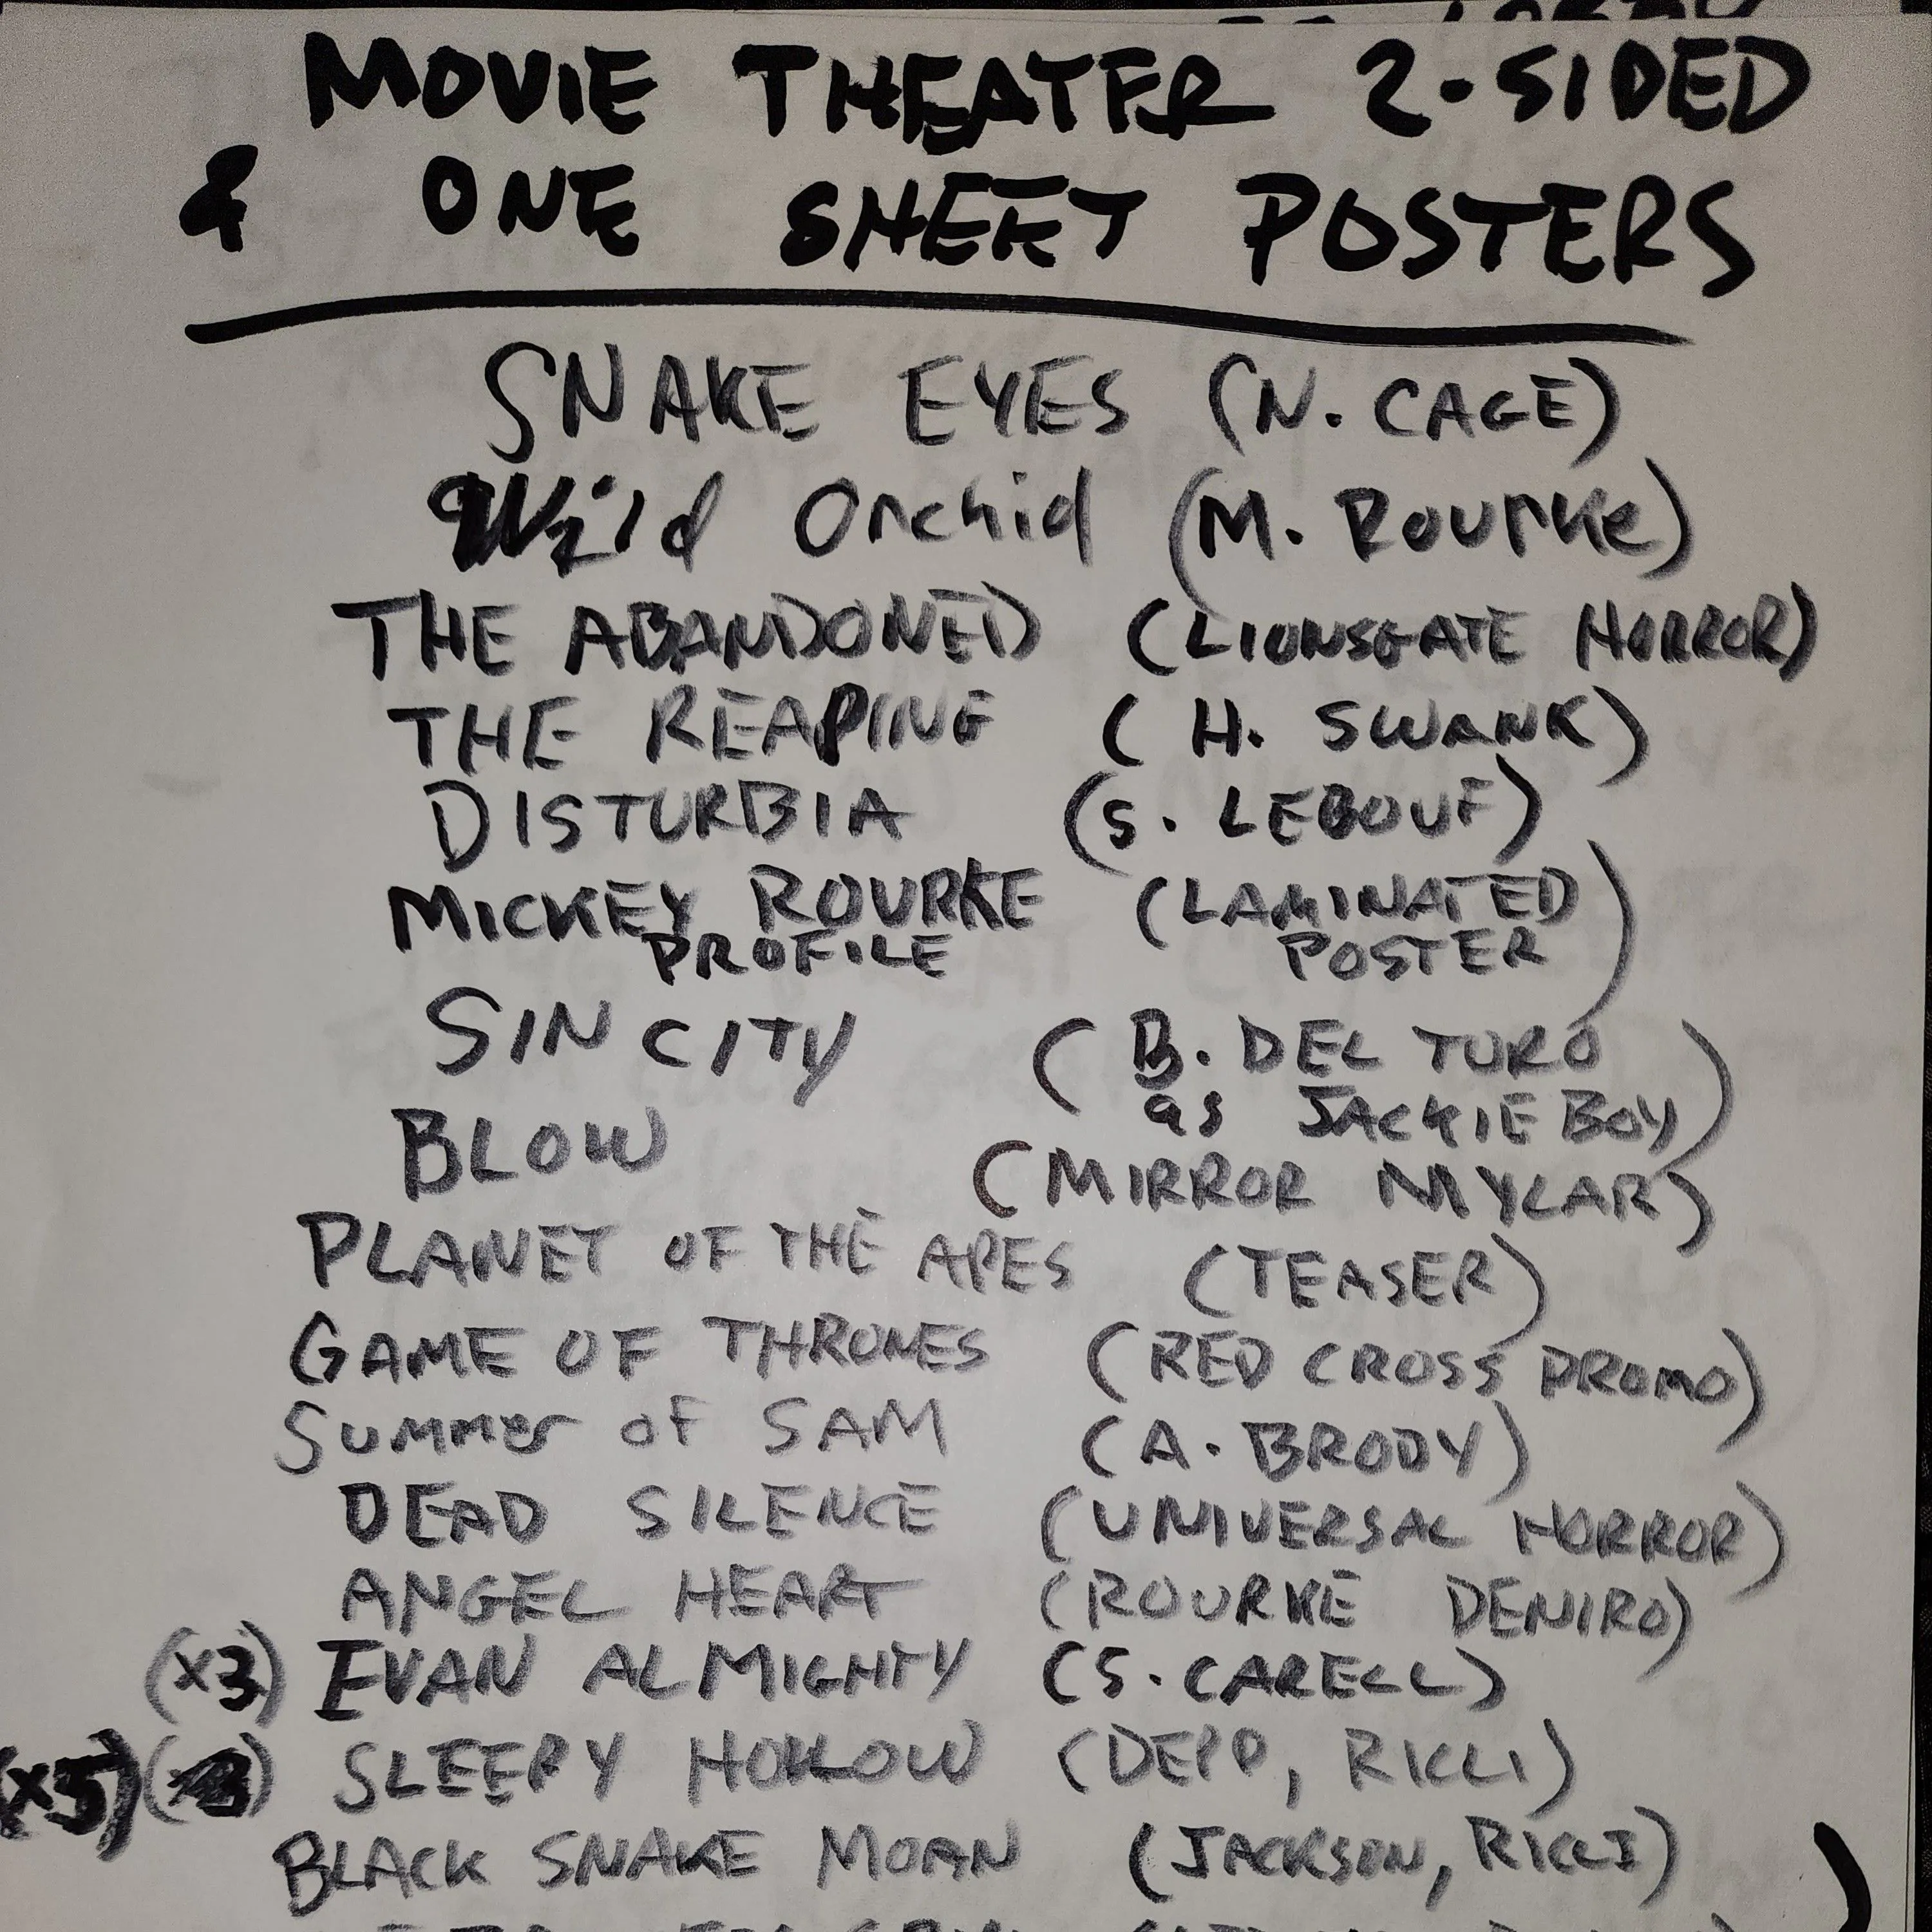 MOVIE THEATER 2-SIDED
& ONE SHEET POSTERS
SNAKE EYES (N. CAGE)
Wild Orchid (M. ROURKE)
THE ABANDONED (LIONSGATE HORROR)
THE REAPING (H. SWANK)
DISTURBIA (S. LEBOUF)
MICKEY ROURKE (LAMINATED
PROFILE POSTER)
SIN CITY (B. DEL TURO
as JACKIE BOY)
BLOW (MIRROR MYLAR)
PLANET OF THE APES (TEASER)
GAME OF THRONES (RED CROSS PROMO)
SUMMER OF SAM (A. BRODY)
DEAD SILENCE (UNIVERSAL HORROR)
ANGEL HEART (ROURKE DENIRO)
(x3) EVAN ALMIGHTY (S. CARELL)
(x5) SLEEPY HOLLOW (DEPP, RICCI)
BLACK SNAKE MOAN (JACKSON, RICCI)